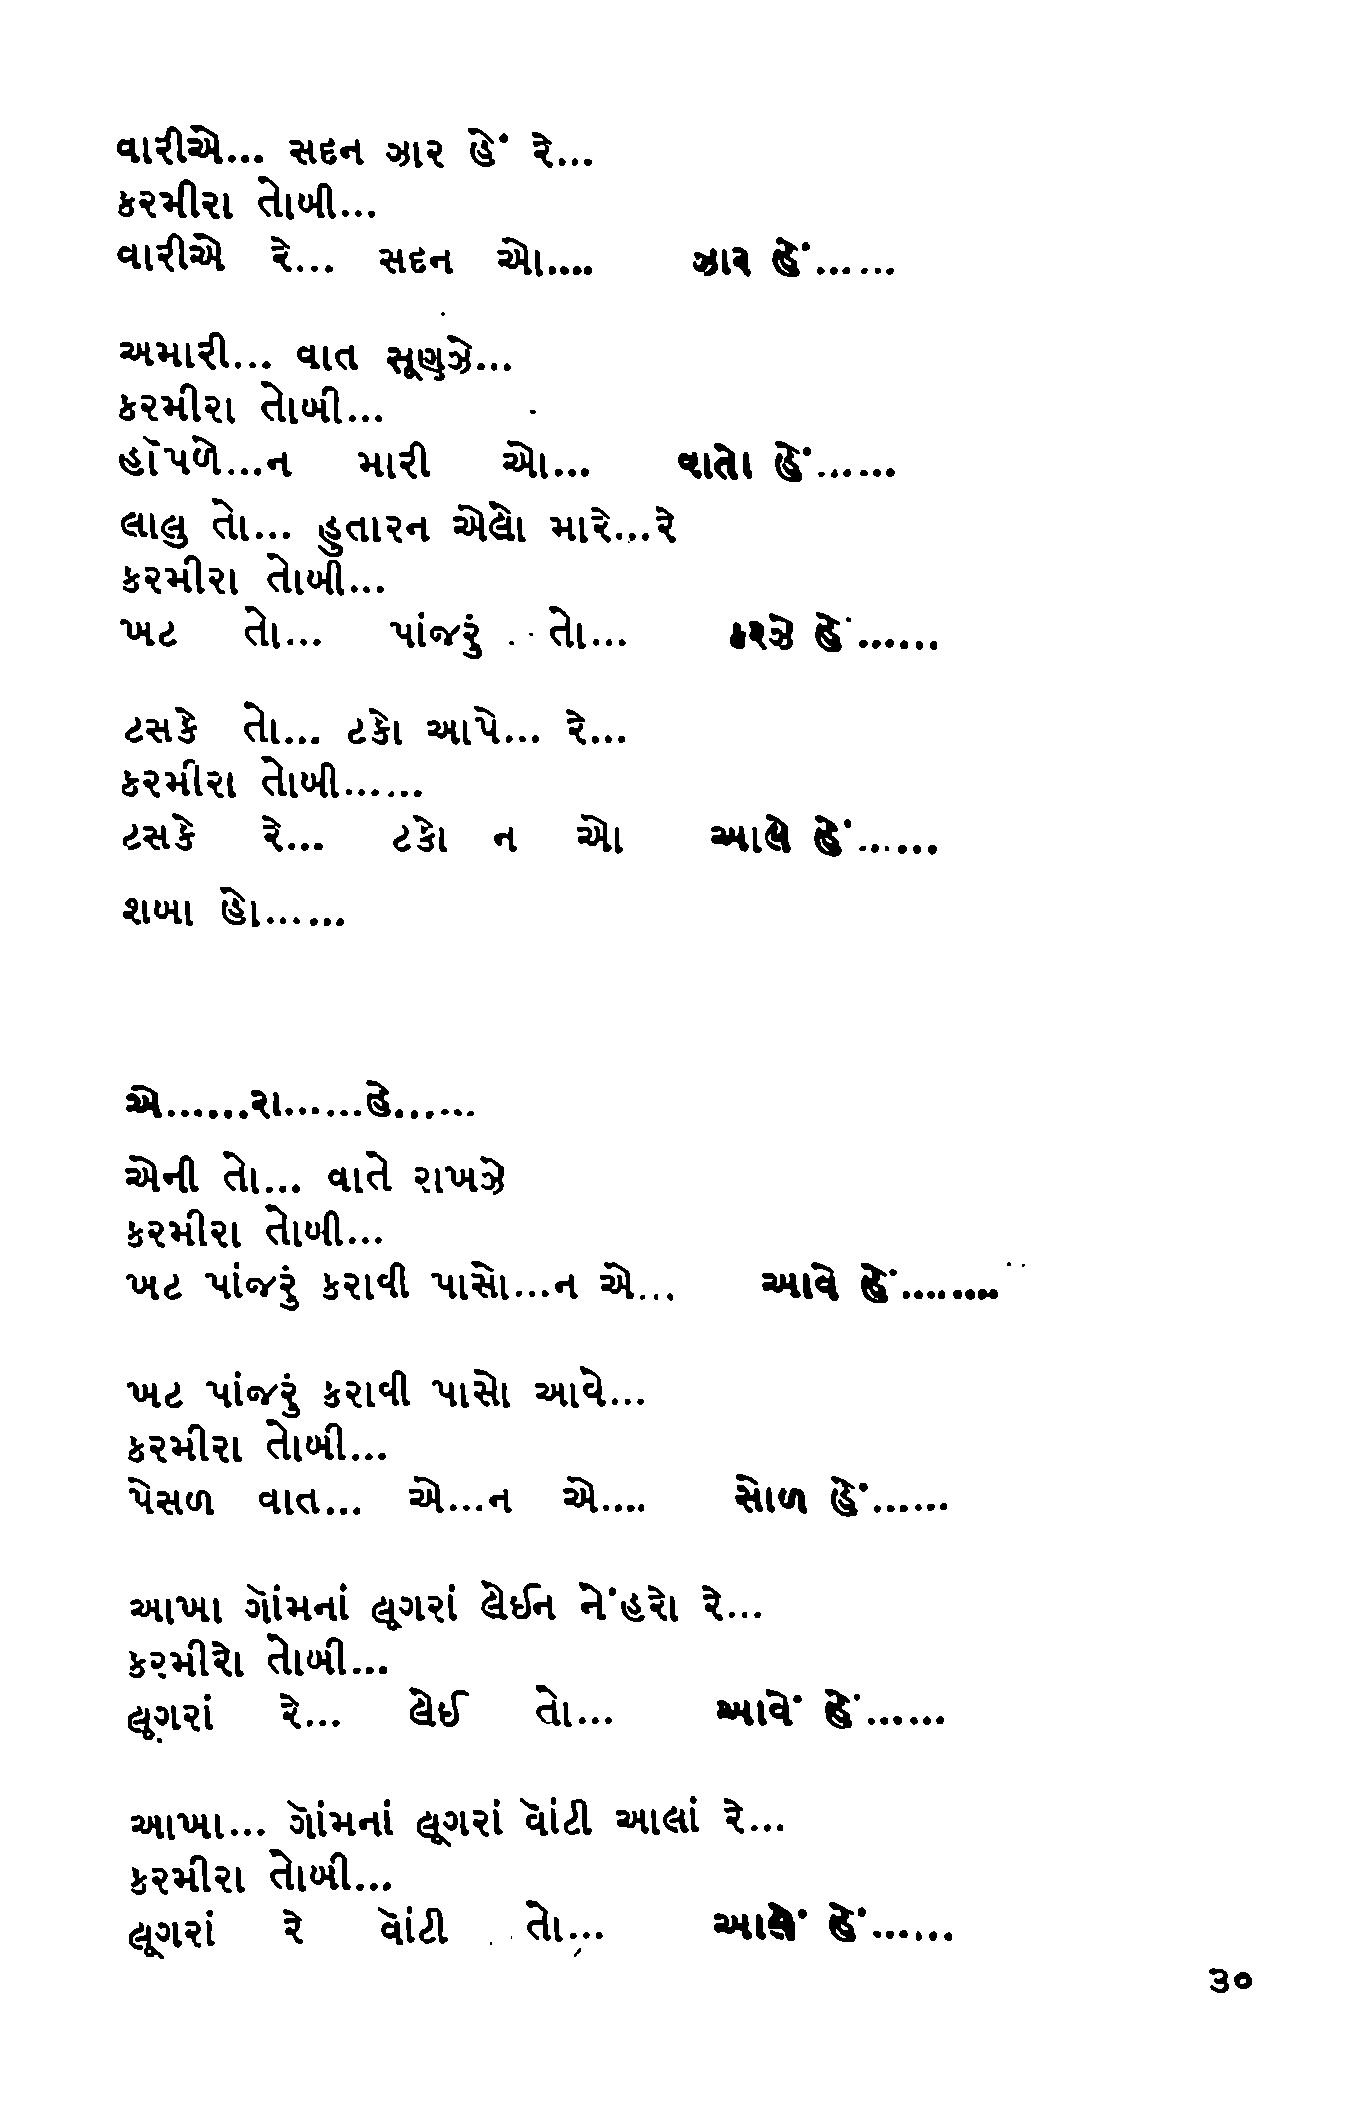 વારીએ... સદન ઝાર હેં રે...
કરમીરા તોબી...
વારીએ રે... સદન ઓ.... ઝાર હેં......
અમારી... વાત સૂણઝે...
કરમીરા તોબી...
હૉપળે...ન મારી ઓ... વાતો હેં......
લાલુ તો... હુતારન એલો મારે...રે
કરમીરા તોબી...
ખટ તો... પાંજરું તો... કરઝે હેં......
ટસકે તો... ટકો આપે... રે...
કરમીરા તોબી......
ટસકે રે... ટકો ન ઓ આલે હેં......
શબા હો......
એ......રા......હે......
એની તો... વાતે રાખઝે
કરમીરા તોબી...
ખટ પાંજરું કરાવી પાસો...ન એ... આવે હેં........
ખટ પાંજરું કરાવી પાસો આવે...
કરમીરા તોબી...
પેસળ વાત... એ...ન એ.... સોળ હેં......
આખા ગૉંમનાં લૂગરાં લેઈન નેંહરો રે...
કરમીરો તોબી...
લૂગરાં રે... લેઈ તો... આવેં હેં......
આખા... ગૉંમનાં લૂગરાં વૉંટી આલાં રે...
કરમીરા તોબી...
લૂગરાં રે વૉંટી તો... આલેં હેં......
૩૦